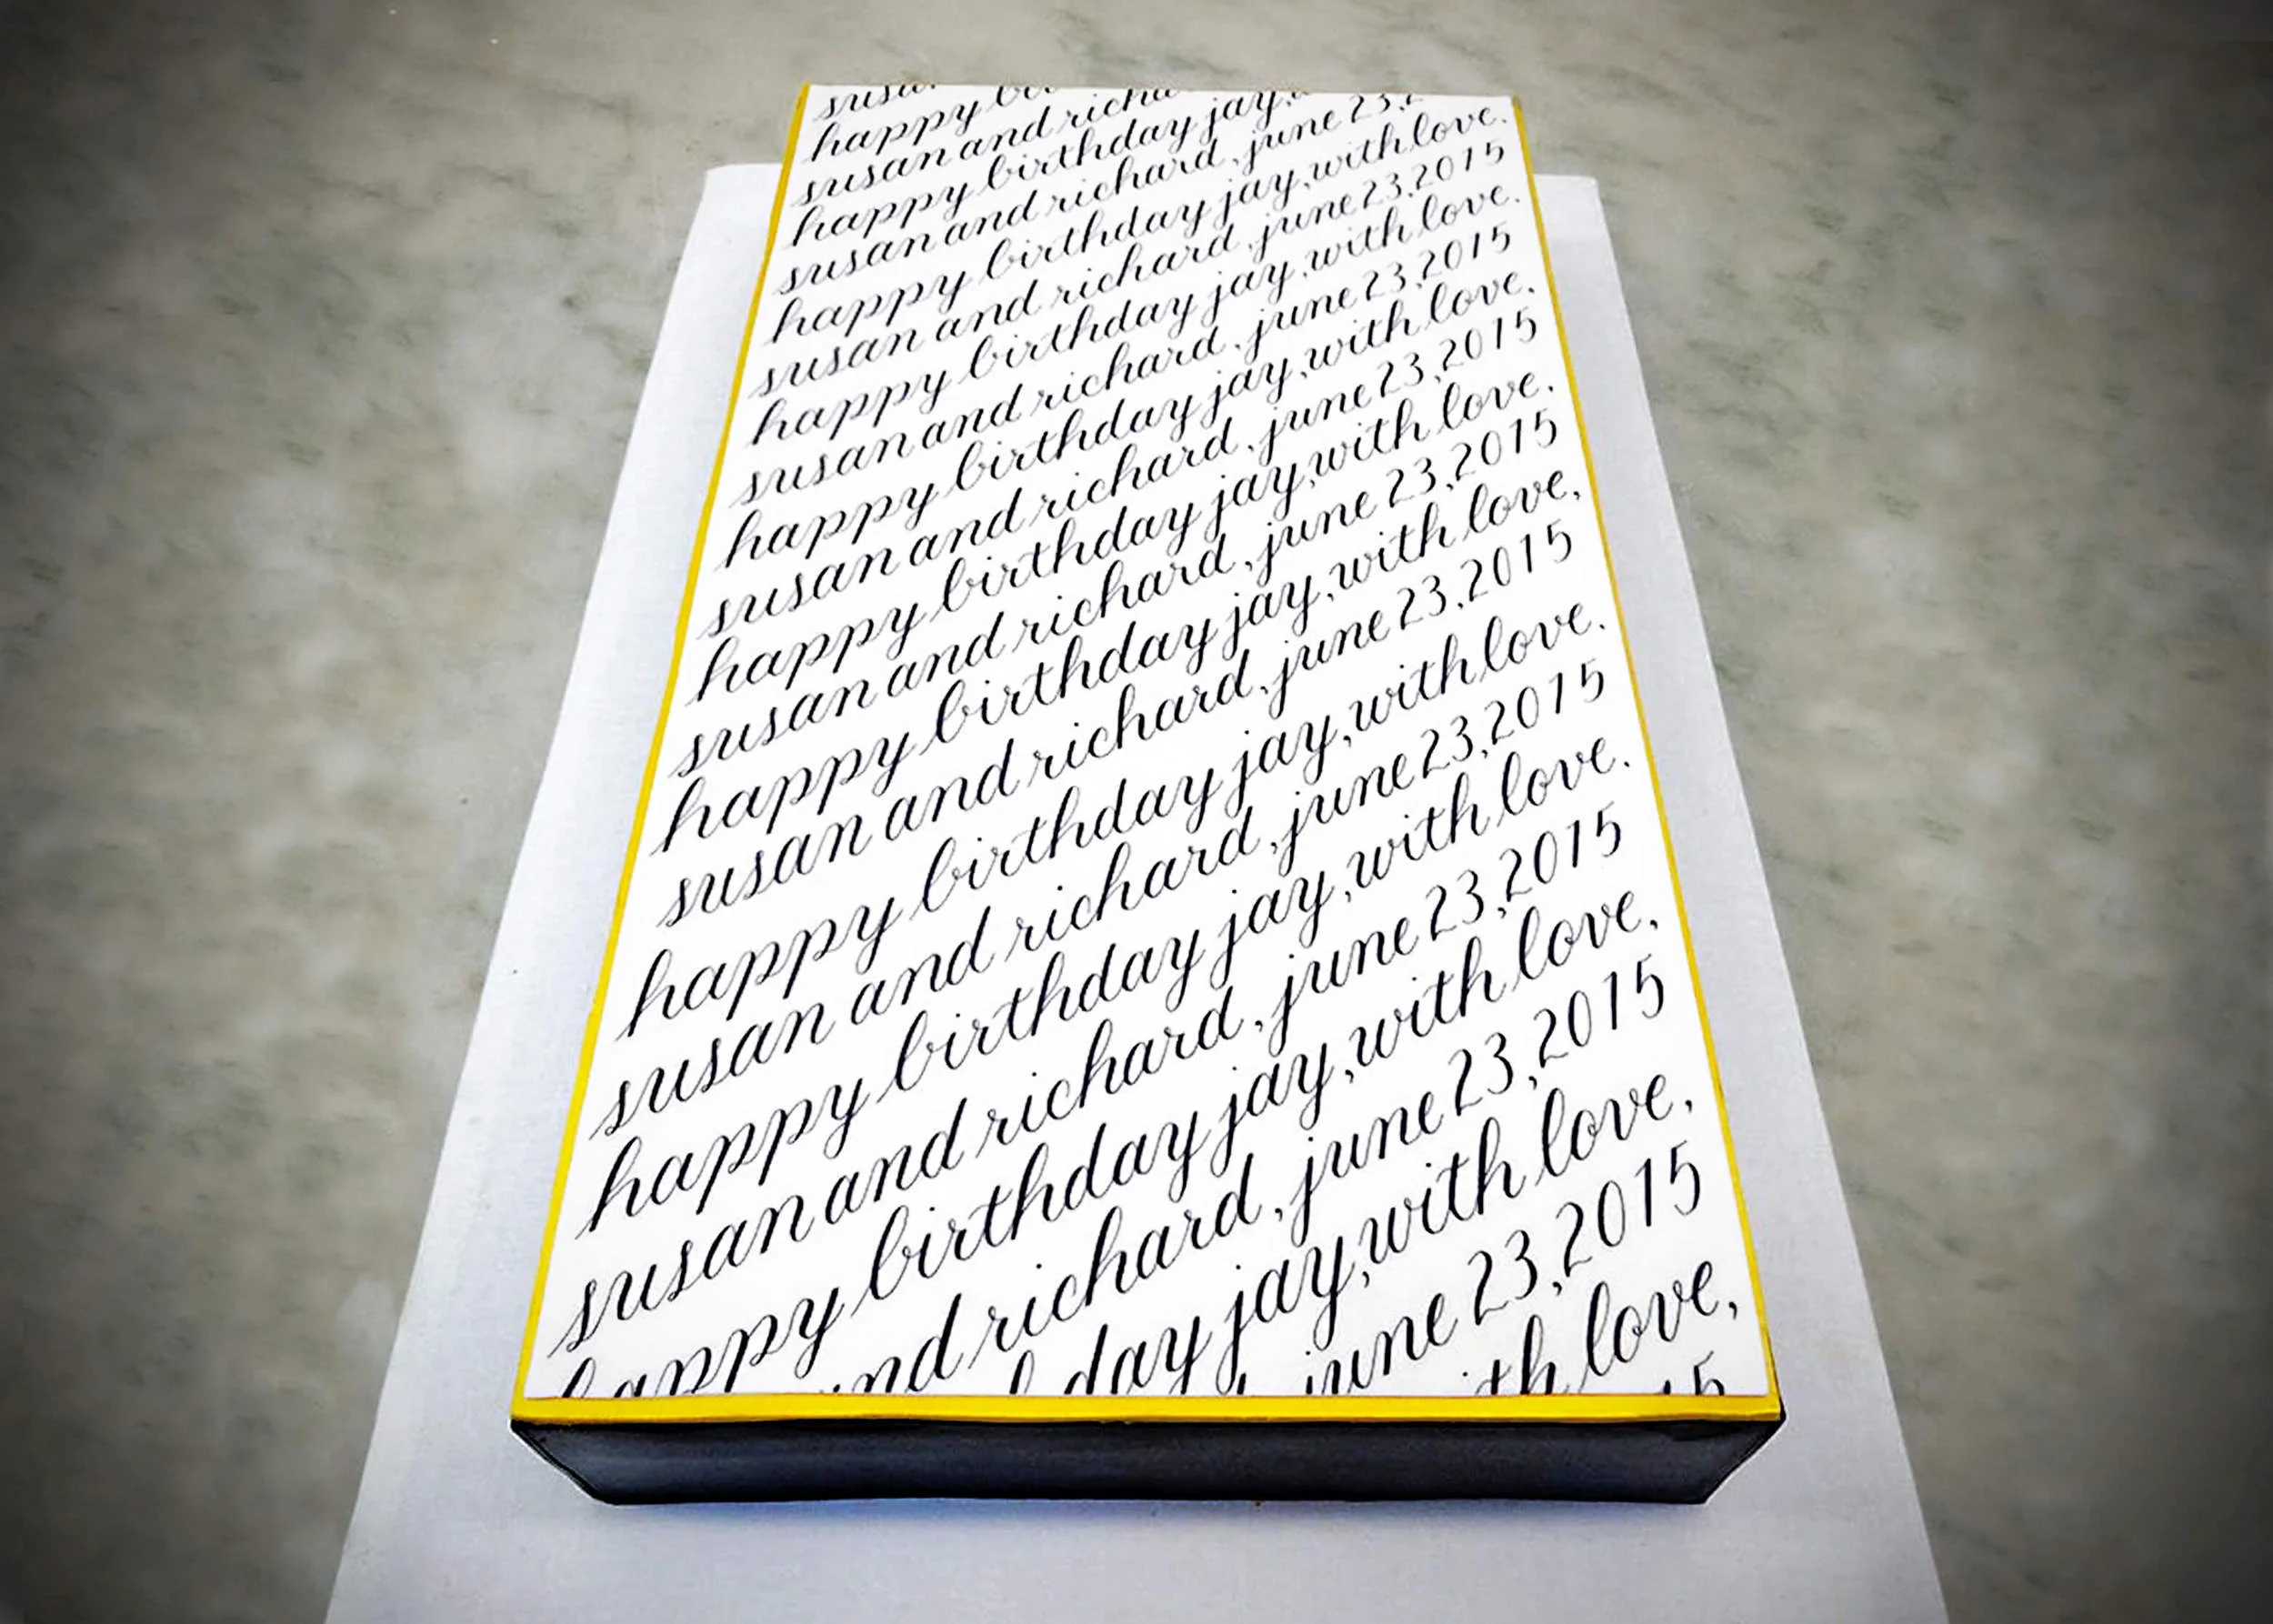 happy
susan and richa
happy birthday jay,
susan and richard, june 23,
happy birthday jay, with love,
susan and richard, june 23, 2015
happy birthday jay, with love,
susan and richard, june 23, 2015
happy birthday jay, with love,
susan and richard, june 23, 2015
happy birthday jay, with love,
susan and richard, june 23, 2015
happy birthday jay, with love,
susan and richard, june 23, 2015
happy birthday jay, with love,
susan and richard, june 23, 2015
happy birthday jay, with love,
susan and richard, june 23, 2015
happy birthday jay, with love,
nd richard, june 23, 2015
day jay, with love,
june 23, 2015
th love,
15